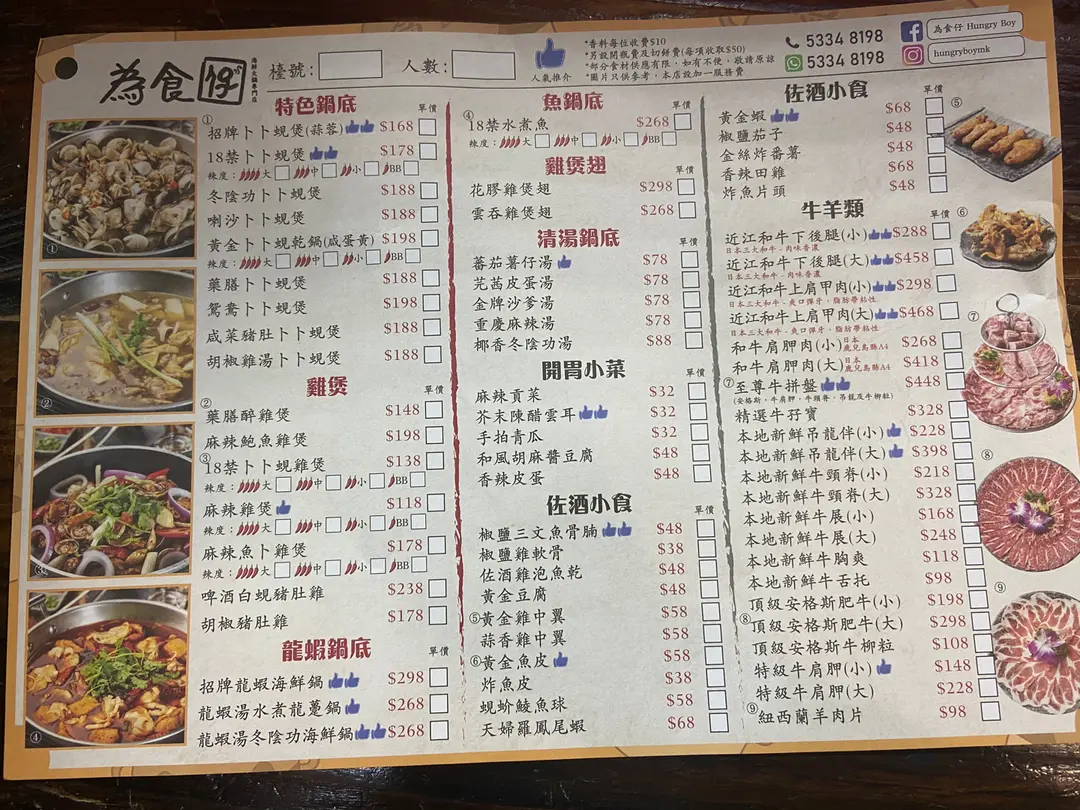 為食仔
海鮮火鍋專門店
檯號:
人數:
人氣推介
*香料每位收費$10
*另設開瓶費及切餅費(每項收取$50)
*部分食材供應有限，如有不便，敬請原諒
*圖片只供參考，本店設加一服務費
5334 8198
5334 8198
為食仔 Hungry Boy
hungryboymk
特色鍋底
單價
①
招牌卜卜蜆煲(蒜蓉) $168
18禁卜卜蜆煲 $178
辣度： 大 中 小 BB
冬陰功卜蜆煲 $188
喇沙卜卜蜆煲 $188
黃金卜卜蜆乾鍋(咸蛋黃) $198
辣度： 大 中 小 BB
藥膳卜卜蜆煲 $188
鴛鴦卜卜蜆煲 $198
咸菜豬肚卜卜蜆煲 $188
胡椒雞湯卜卜蜆煲 $188
雞煲
單價
②
藥膳醉雞煲 $148
麻辣鮑魚雞煲 $198
③
18禁卜卜蜆雞煲 $138
辣度： 大 中 小 BB
麻辣雞煲 $118
辣度： 大 中 小 BB
麻辣魚卜雞煲 $178
辣度： 大 中 小 BB
啤酒白蜆豬肚雞 $238
胡椒豬肚雞 $178
龍蝦鍋底
單價
招牌龍蝦海鮮鍋 $298
龍蝦湯水煮龍躉鍋 $268
龍蝦湯冬陰功海鮮鍋 $268
魚鍋底
單價
④
18禁水煮魚 $268
辣度： 大 中 小 BB
雞煲翅
單價
花膠雞煲翅 $298
雲吞雞煲翅 $268
清湯鍋底
單價
蕃茄薯仔湯 $78
芫茜皮蛋湯 $78
金牌沙爹湯 $78
重慶麻辣湯 $78
椰香冬陰功湯 $88
開胃小菜
單價
麻辣貢菜 $32
芥末陳醋雲耳 $32
手拍青瓜 $32
和風胡麻醬豆腐 $48
香辣皮蛋 $48
佐酒小食
單價
椒鹽三文魚骨腩 $48
椒鹽雞軟骨 $38
佐酒雞泡魚乾 $48
黃金豆腐 $48
⑤黃金雞中翼 $58
蒜香雞中翼 $58
⑥黃金魚皮 $58
炸魚皮 $38
蜆蚧鯪魚球 $58
天婦羅鳳尾蝦 $68
佐酒小食
單價
黃金蝦 $68
椒鹽茄子 $48
金絲炸番薯 $48
香辣田雞 $68
炸魚片頭 $48
牛羊類
單價
近江和牛下後腿(小) $288
日本三大和牛-肉味香濃
近江和牛下後腿(大) $458
日本三大和牛-肉味香濃
近江和牛上肩甲肉(小) $298
日本三大和牛-爽口彈牙，脂肪帶黏性
近江和牛上肩甲肉(大) $468
日本三大和牛-爽口彈牙，脂肪帶黏性
和牛肩胛肉(小) 日本鹿兒島縣A4 $268
和牛肩胛肉(大) 日本鹿兒島縣A4 $418
⑦至尊牛拼盤 $448
(安格斯，牛肩胛，牛頸脊，吊龍及牛柳粒)
精選牛孖寶 $328
本地新鮮吊龍伴(小) $228
本地新鮮吊龍伴(大) $398
本地新鮮牛頸脊(小) $218
本地新鮮牛頸脊(大) $328
本地新鮮牛展(小) $168
本地新鮮牛展(大) $248
本地新鮮牛胸爽 $118
本地新鮮牛舌托 $98
頂級安格斯肥牛(小) $198
⑧
頂級安格斯肥牛(大) $298
頂級安格斯牛柳粒 $108
特級牛肩胛(小) $148
特級牛肩胛(大) $228
⑨
紐西蘭羊肉片 $98
①
②
③
④
⑤
⑥
⑦
⑧
⑨